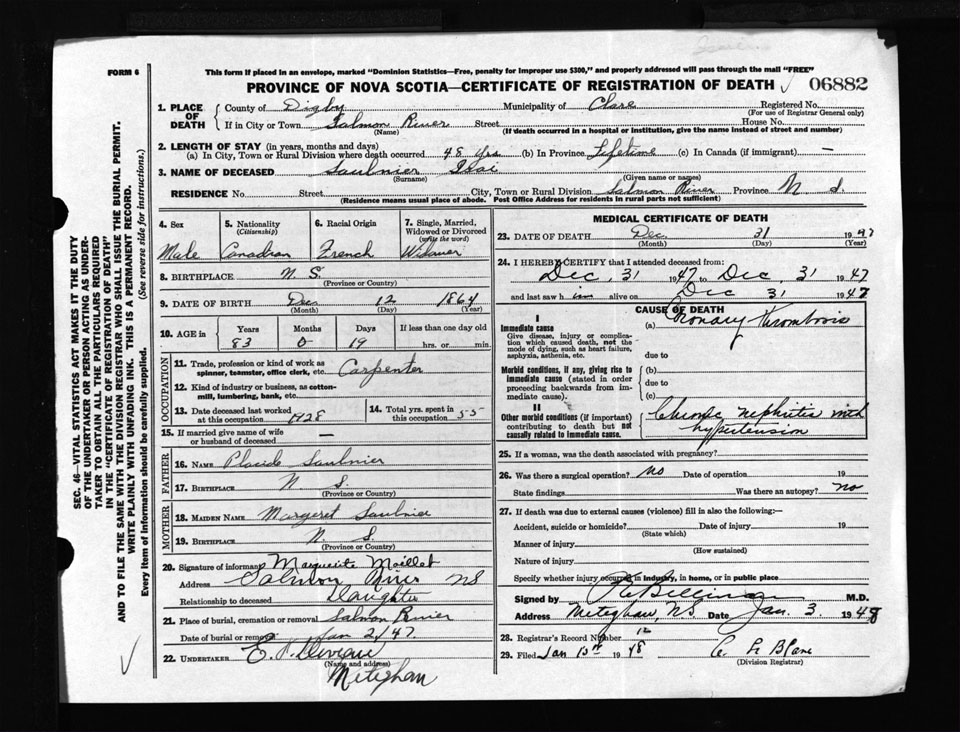 FORM 6
This form if placed in an envelope, marked "Dominion Statistics—Free, penalty for improper use $300," and properly addressed will pass through the mail "FREE"
PROVINCE OF NOVA SCOTIA—CERTIFICATE OF REGISTRATION OF DEATH 06882
1. PLACE OF DEATH County of Digby Municipality of Clare Registered No.
(For use of Registrar General only)
If in City or Town Salmon River Street House No.
(Name) (If death occurred in a hospital or institution, give the name instead of street and number)
2. LENGTH OF STAY (in years, months and days)
(a) In City, Town or Rural Division where death occurred 48 yrs (b) In Province Lifetime (c) In Canada (if immigrant) —
3. NAME OF DECEASED Saulnier Isai
(Surname) (Given name or names)
RESIDENCE No. Street City, Town or Rural Division Salmon River Province N S.
(Residence means usual place of abode. Post Office Address for residents in rural parts not sufficient)
4. Sex 5. Nationality 6. Racial Origin 7. Single, Married, Widowed or Divorced
(Citizenship) (write the word)
Male Canadian French Widower
8. BIRTHPLACE N. S.
(Province or Country)
9. DATE OF BIRTH Dec 12 1864
(Month) (Day) (Year)
10. AGE in Years Months Days If less than one day old
83 0 19 hrs. or min.
OCCUPATION
11. Trade, profession or kind of work as spinner, teamster, office clerk, etc. Carpenter
12. Kind of industry or business, as cotton-mill, lumbering, bank, etc.
13. Date deceased last worked at this occupation 1928 14. Total yrs. spent in this occupation 55
15. If married give name of wife or husband of deceased —
FATHER
16. NAME Placide Saulnier
17. BIRTHPLACE N. S.
(Province or Country)
MOTHER
18. MAIDEN NAME Margaret Saulnier
19. BIRTHPLACE N. S.
(Province or Country)
20. Signature of informant Marguerite Maillet
Address Salmon River NS
Relationship to deceased Daughter
21. Place of burial, cremation or removal Salmon River
Date of burial or removal Jan 2/47
22. UNDERTAKER
(Name and address)
Meteghan
MEDICAL CERTIFICATE OF DEATH
23. DATE OF DEATH Dec. 31 1947
(Month) (Day) (Year)
24. I HEREBY CERTIFY that I attended deceased from:
Dec. 31 1947 to Dec 31 1947
and last saw him alive on Dec 31 1947
CAUSE OF DEATH
I
Immediate cause (a) Coronary Thrombosis
Give disease, injury or complication which caused death, not the mode of dying, such as heart failure, asphyxia, asthenia, etc.
due to
Morbid conditions, if any, giving rise to immediate cause (stated in order proceeding backwards from immediate cause).
(b)
due to
(c)
II
Other morbid conditions (if important) contributing to death but not causally related to immediate cause.
Chronic nephritis with
hypertension
25. If a woman, was the death associated with pregnancy?
26. Was there a surgical operation? No Date of operation 19
State findings Was there an autopsy? No
27. If death was due to external causes (violence) fill in also the following:—
Accident, suicide or homicide? Date of injury 19
(State which)
Manner of injury
(How sustained)
Nature of injury
Specify whether injury occurred in industry, in home, or in public place
Signed by M.D.
Address Meteghan, NS Date Jan. 3 1948
28. Registrar's Record Number 12
29. Filed Jan 1948
(Division Registrar)
SEC. 46—VITAL STATISTICS ACT MAKES IT THE DUTY
OF THE UNDERTAKER OR PERSON ACTING AS UNDER-
TAKER TO OBTAIN ALL THE PARTICULARS REQUIRED
IN THE "CERTIFICATE OF REGISTRATION OF DEATH"
AND TO FILE THE SAME WITH THE DIVISION REGISTRAR WHO SHALL ISSUE THE BURIAL PERMIT.
WRITE PLAINLY WITH UNFADING INK. THIS IS A PERMANENT RECORD.
Every item of information should be carefully supplied. (See reverse side for instructions.)